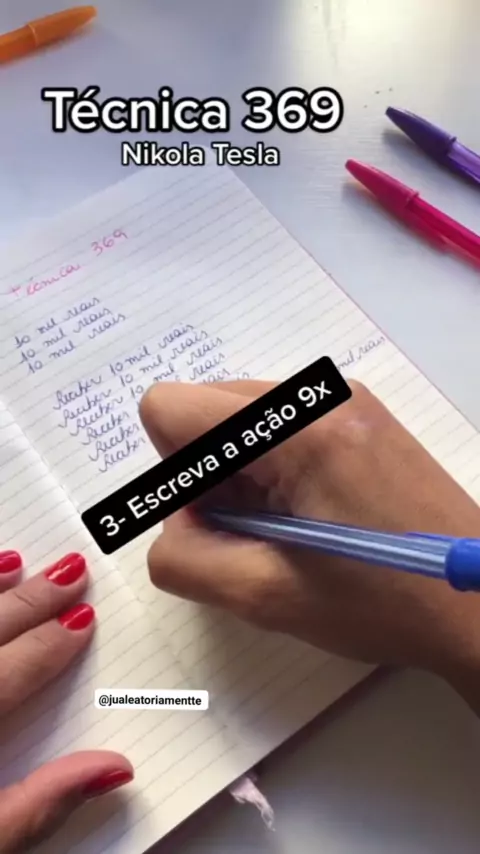 Técnica 369
Nikola Tesla
Técnica 369
10 mil reais
10 mil reais
10 mil reais
Receber 10 mil reais
Receber 10 mil reais
Receber 10 mil reais
Receber reais
Receber
Receber
mil reais
3- Escreva a ação 9x
@jualeatoriamentte